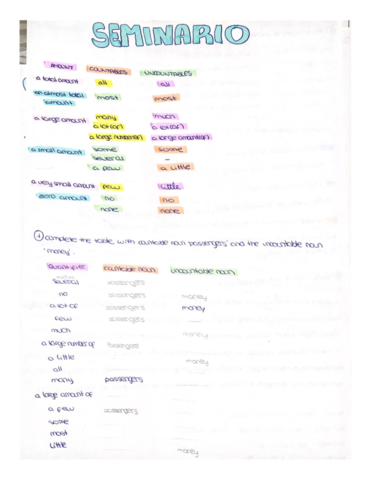 SEMINARIO
AMOUNT COUNTABLES UNCOUNTABLES
a total amount all all
an almost total amount most most
a large amount many much
a lot (of) a lot (of)
a large number(of) a large amount(of)
a small amount some some
several -
a few a little
a very small amount few little
zero amount no no
none none
① complete the table with countable noun 'passengers' and the uncountable noun
'money'.
quantifier countable noun uncountable noun
several passengers
no passengers money
a lot of passengers money
few passengers
much money
a large number of passengers
a little money
all
many passengers
a large amount of
a few passengers
some
most
little money